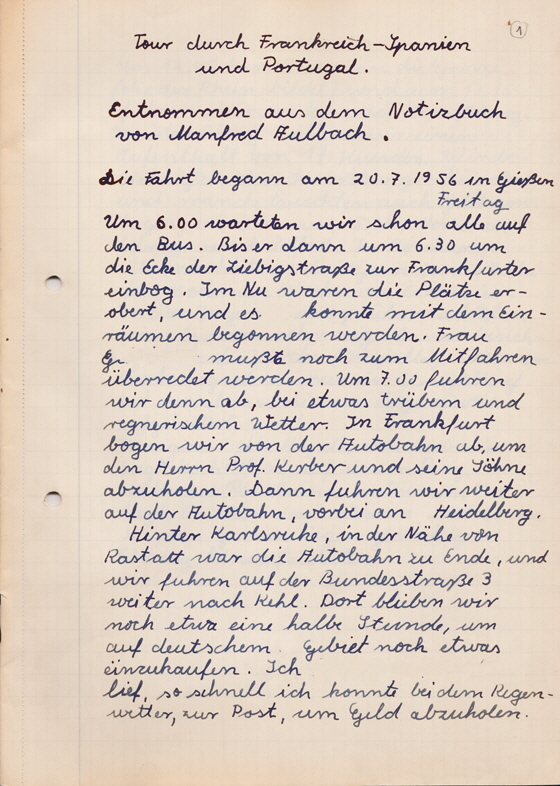 1
Tour durch Frankreich-Spanien
und Portugal.
Entnommen aus dem Notizbuch
von Manfred Aulbach.
Die Fahrt begann am 20.7.1956 in Gießen
Freitag
Um 6.00 warteten wir schon alle auf
den Bus. Bis er dann um 6.30 um
die Ecke der Liebigstraße zur Frankfurter
einbog. Im Nu waren die Plätze er-
obert, und es konnte mit dem Ein-
räumen begonnen werden. Frau
mußte noch zum Mitfahren
überredet werden. Um 7.00 fuhren
wir denn ab, bei etwas trübem und
regnerischem Wetter. In Frankfurt
bogen wir von der Autobahn ab, um
den Herrn Prof. Kerber und seine Söhne
abzuholen. Dann fuhren wir weiter
auf der Autobahn, vorbei an Heidelberg.
Hinter Karlsruhe, in der Nähe von
Rastatt war die Autobahn zu Ende, und
wir fuhren auf der Bundesstraße 3
weiter nach Kehl. Dort blieben wir
noch etwa eine halbe Stunde, um
auf deutschem Gebiet noch etwas
einzukaufen. Ich
lief, so schnell ich konnte bei dem Regen-
wetter, zur Post, um Geld abzuholen.